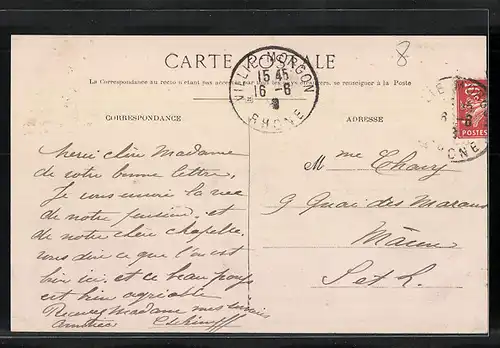 8
CARTE POSTALE
La Correspondance au recto n'étant pas acceptée par tous les pays étrangers, se renseigner à la Poste
VILLIE-MORGON
15 45
16 - 6
RHONE
10
POSTES
CORRESPONDANCE
ADRESSE
Merci chère Madame
de votre bonne lettre,
Je vous envoie la vue
de notre pension et
de notre chère chapelle,
vous dire ce que l'on est
bien ici et ce beau pays
est bien agréable
Recevez Madame mes
amitiés
Mme
9 Quai des Marans
Mâcon
S et L.